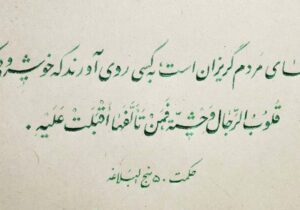 ـای مردم گریزان است، به کسی روی آورند که خوشرو
قُلُوبُ الرِّجَالِ وَحْشِيَّةٌ فَمَنْ تَأَلَّفَهَا أَقْبَلَتْ عَلَيْهِ .
حکمت ۵۰ نهج البلاغه